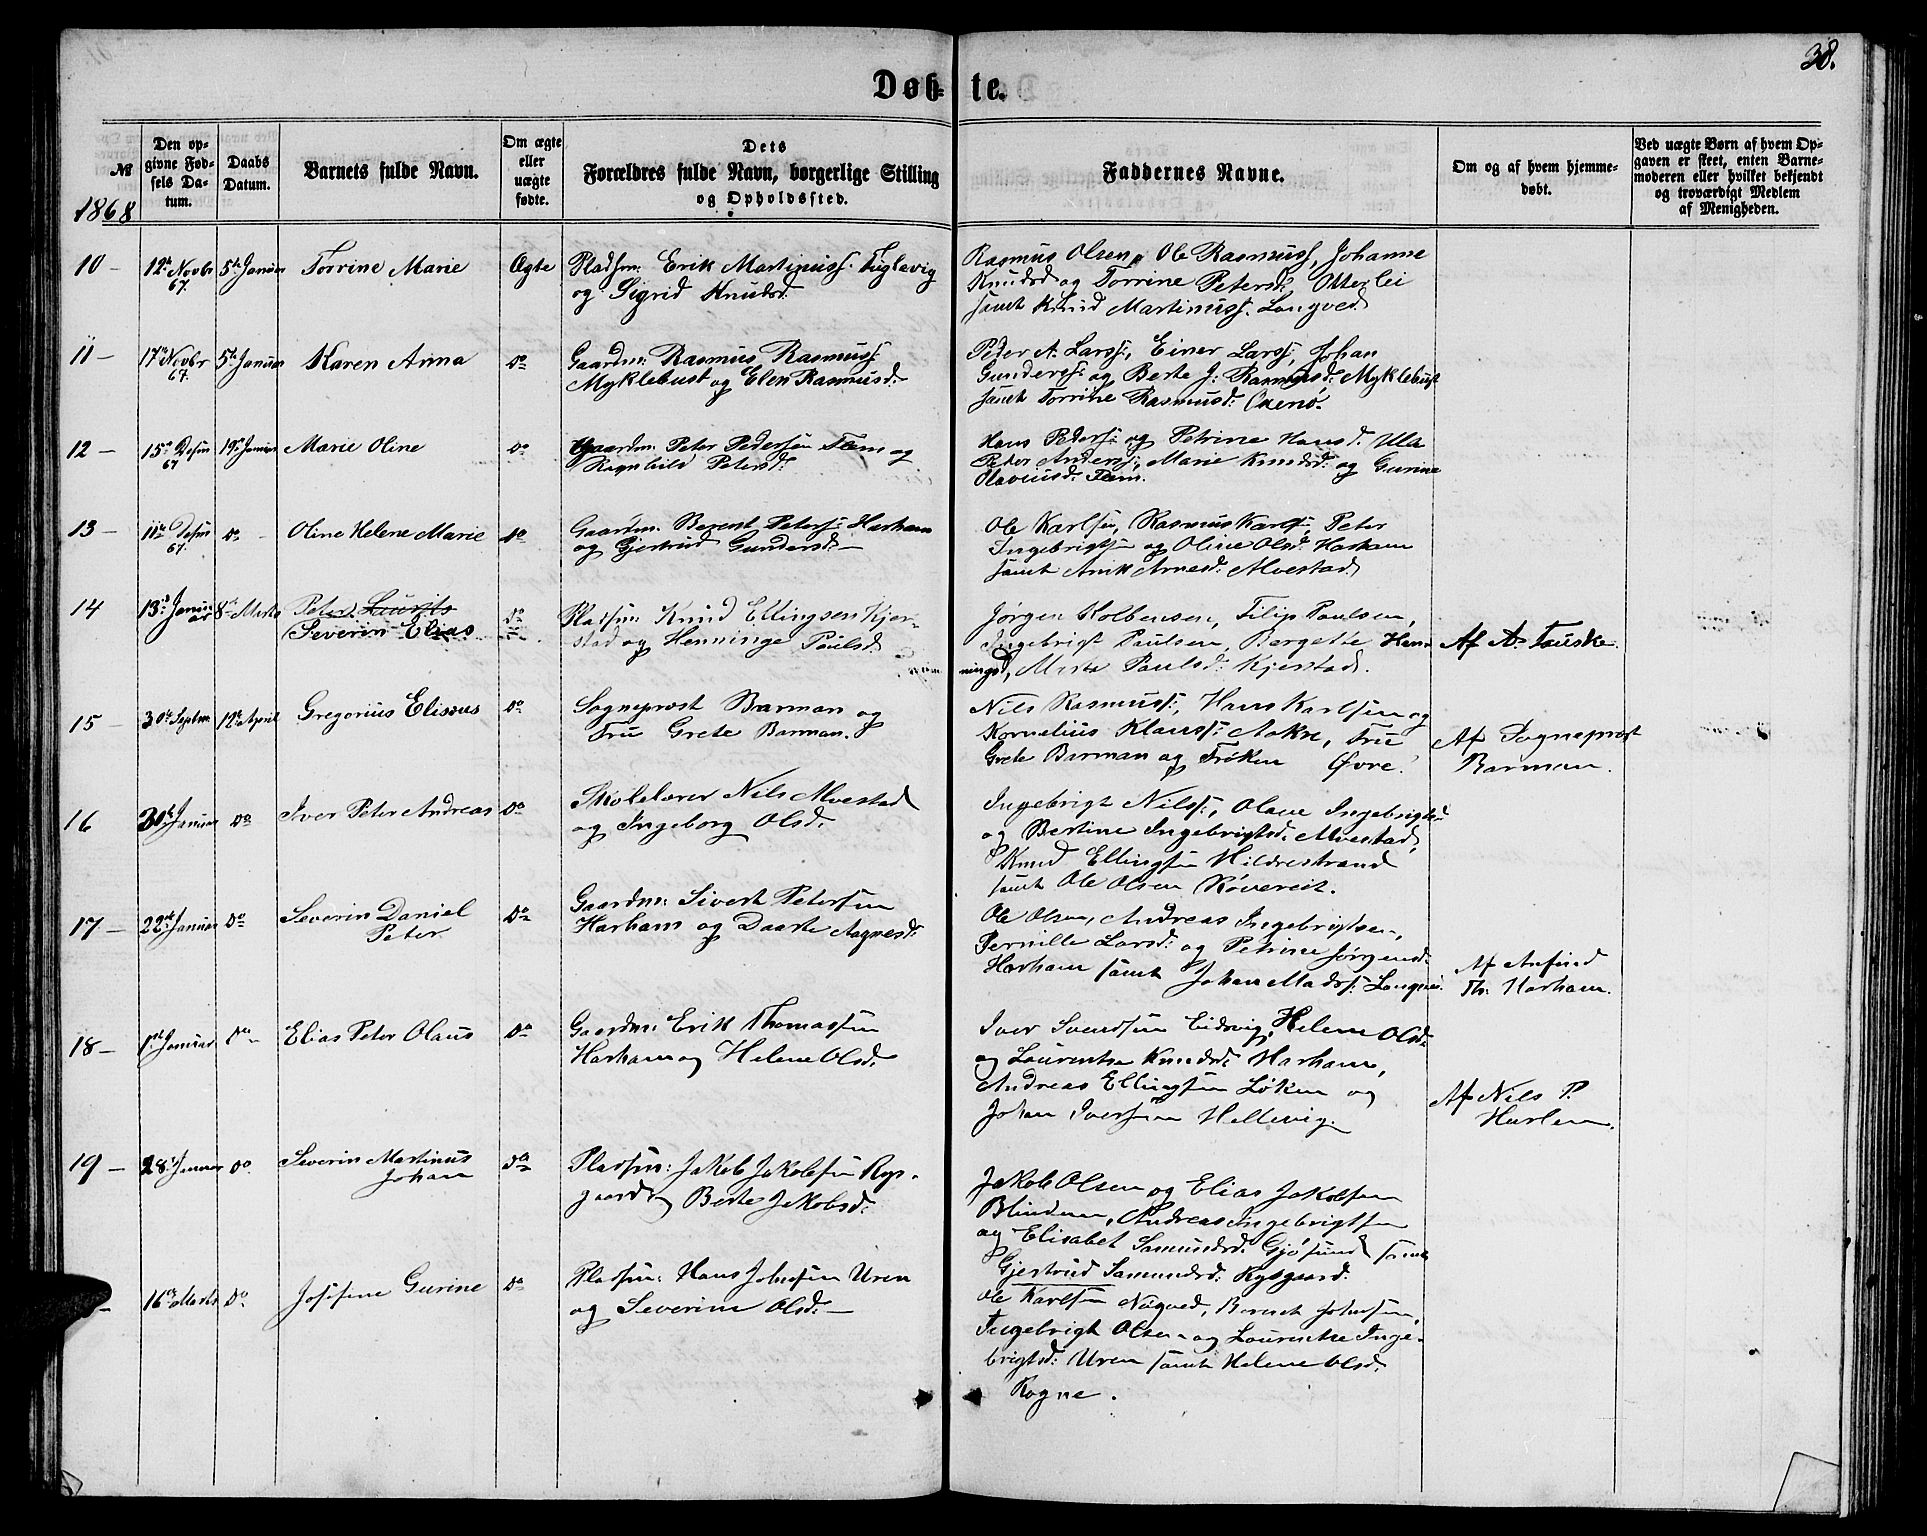 38.
Døb= te.
№
Den op-
givne Fød-
sels Da-
tum.
Daabs
Datum.
Barnets fulde Navn.
Om ægte
eller
uægte
fødte.
Dets
Forældres fulde Navn, borgerlige Stilling
og Opholdssted.
Faddernes Navne.
Om og af hvem hjemme-
døbt.
Ved uægte Børn af hvem Op-
gaven er skeet, enten Barne-
moderen eller hvilket bekjendt
og troværdigt Medlem
af Menigheden.
1868
10 - 12te Novbr 67. 5te Januar Torrine Marie Ægte Pladsm: Erik Martinuss. Fuglevig
og Sigrid Knudsd.
Rasmus Olsen, Ole Rasmuss, Johanne
Knudsd og Torrine Petersd: Otterlei
samt Knud Martinuss. Longved
11 - 17de Novbr 67. 5te Januar Karen Anna do Gaardm: Rasmus Rasmuss:
Myklebust og Elen Rasmusd.
Peder A. Larss:, Einer Larss, Johan
Gunderss: og Berte J: Rasmusd: Myklebust
samt Torrine Rasmusd:
12 - 15de Desm 67 19de Januar Marie Oline do Gaardm: Peter Pedersen Fæm og
Ragnhild Petersd:
Hans Peders: og Petrine Hansd. Ulla
Peter Anders:, Marie Knudsd: og Gurine
Olaviusd: Fæm.
13 - 11te Desm 67. do Oline Helene Marie do Gaardm. Berent Peters: Harham
og Gjertrud Gundersd. -
Ole Karlsen, Rasmus Karls:, Peter
Ingebrigtsen og Oline Olsd. Harham
samt Anne Arnesd: Alvestad
14 13de Januar 8de Marts Peter Laurits
Severin Elias do Pladsm: Knud Ellingsen Kjer-
stad og Henninge Paulsd.
Jørgen Kolbensen, Filip Paulsen,
Ingebrigt Paulsen, Bergette Hen-
ningsd, Marta Paulsd: Kjerstad.
Af A. Fauske.
15 30te Septbr 12te April Gregorius Eliseus do Sogneprost Barman og
Fru Grete Barman.
Nils Rasmuss:, Hans Karlsen og
Kornelius Klauss: Aakre, Fru
Grete Barman og Frøken Øvre.
Af Sogneprost
Barman.
16 30te Januar do Iver Peter Andreas do Skolelærer Nils Alvestad
og Ingeborg Olsd.
Ingebrigt Nilss:, Olave Ingebrigtsd
og Bertine Ingebrigtsd. Alvestad,
Knud Ellingsen Hildrestrand
samt Ole Olsen Røvereit.
17 - 22de Januar do Severin Daniel
Peter do Gaardm: Sivert Petersen
Harham og Daarte Aagesd.
Ole Olsen, Andreas Ingebrigtsen,
Pernille Larsd: og Petrine Jørgensd.
Harham samt Johan Madss:
Af Anfind
Th. Harham.
18 - 1ste Januar do Elias Peter Olaus do Gaardm: Erik Thomassen
Harham og Helene Olsd.
Iver Svendsen Eidsvig, Helene Olsd:
og Laurentse Knudsd: Harham,
Andreas Ellingsen Løken og
Johan Iversen Hellevig.
Af Nils P.
Harham.
19 - 28de Januar do Severin Martinus
Johan do Pladsm: Jakob Jakobsen Rys-
gaard og Berte Jakobsd:
Jakob Olsen og Elias Jakobsen
Blindum, Andreas Ingebrigtsen
og Elisabet Samundsd. Gjøsund samt
Gjertrud Samundsd: Rysgaard.
- 16de Marts do Josefine Gurine do Pladsm: Hans Johnsen Uren
og Severine Olsd: -
Ole Karlsen Nøgved, Berent Johnsen,
Ingebrigt Olsen og Laurentse Inge-
brigtsd: Uren samt Helene Olsd.
Rogne.